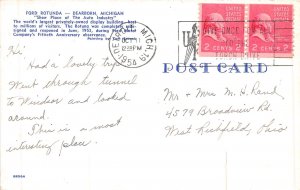 FORD ROTUNDA — DEARBORN, MICHIGAN
"Show Place of The Auto Industry"
The world's largest privately-owned display building, host
to millions of visitors. The Rotunda was completely rede-
signed and reopened in June, 1953, during Ford Motor
Company's Fiftieth Anniversary observance.
MICH. 19
1954
2 CENTS 2
2 CENTS 2
POST CARD
Hi
Had a lovely trip
Went through tunnel
to Windsor and looked
around.
This is a most
interesting place.
Mr + Mrs M. H. Rand
4579 Broadview Rd.
West Richfield, Ohio